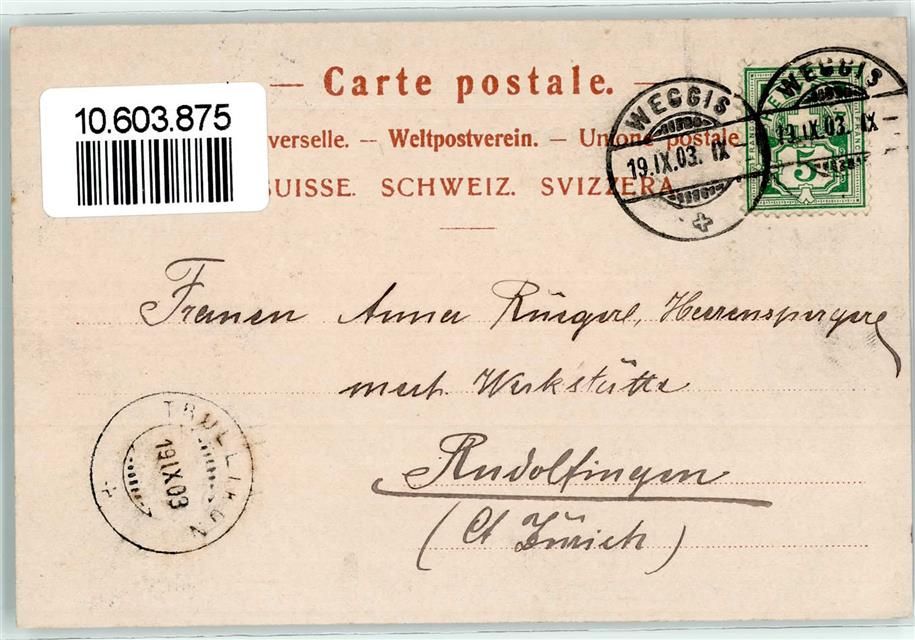 Carte postale.
10.603.875
verselle. — Weltpostverein. — Unione postale
SUISSE. SCHWEIZ. SVIZZERA
WEGGIS
19.IX.03. IX
WEGGIS
19.IX.03. IX
5
Frauen Anna Rüeger, Herrensperger
mech. Werkstätte
Rudolfingen
(Ct Zürich)
TRÜLLIKON
19 IX 03